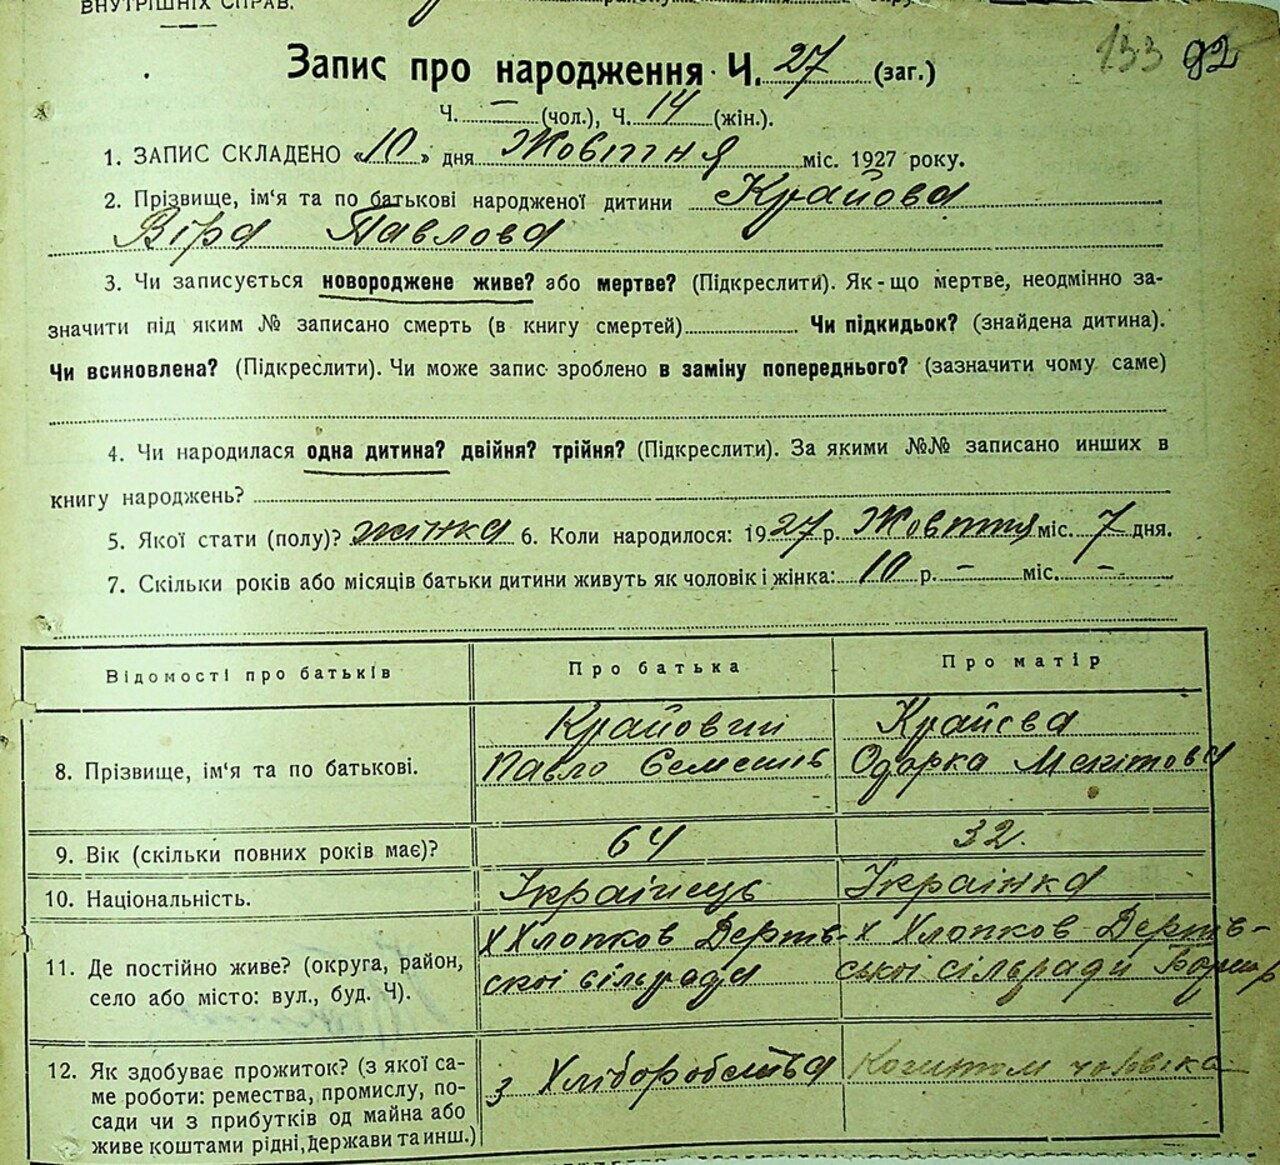 ВНУТРІШНІХ СПРАВ.
133 92
Запис про народження Ч. 27 (заг.)
Ч. — (чол.), Ч. 14 (жін.).
1. ЗАПИС СКЛАДЕНО «10» дня Жовтня міс. 1927 року.
2. Прізвище, ім'я та по батькові народженої дитини Крайова
Віра Павлова
3. Чи записується новороджене живе? або мертве? (Підкреслити). Як-що мертве, неодмінно за-
значити під яким № записано смерть (в книгу смертей) Чи підкидьок? (знайдена дитина).
Чи всиновлена? (Підкреслити). Чи може запис зроблено в заміну попереднього? (зазначити чому саме)
4. Чи народилася одна дитина? двійня? трійня? (Підкреслити). За якими №№ записано инших в
книгу народжень?
5. Якої стати (полу)? жінка 6. Коли народилося: 1927 р. Жовтня міс. 7 дня.
7. Скільки років або місяців батьки дитини живуть як чоловік і жінка: 10 р. — міс. —
Відомості про батьків Про батька Про матір
8. Прізвище, ім'я та по батькові.
Крайовий
Павло Семенів
Краєва
Одарка Микитова
9. Вік (скільки повних років має)? 64 32.
10. Національність. Українець Українка
11. Де постійно живе? (округа, район,
село або місто: вул., буд. Ч).
х Хлопков Дертів-
ської сільради
х Хлопков Дертів-
ської сільради
12. Як здобуває прожиток? (з якої са-
ме роботи: ремества, промислу, по-
сади чи з прибутків од майна або
живе коштами рідні, держави та инш.)
з Хліборобства
Коштом чоловіка